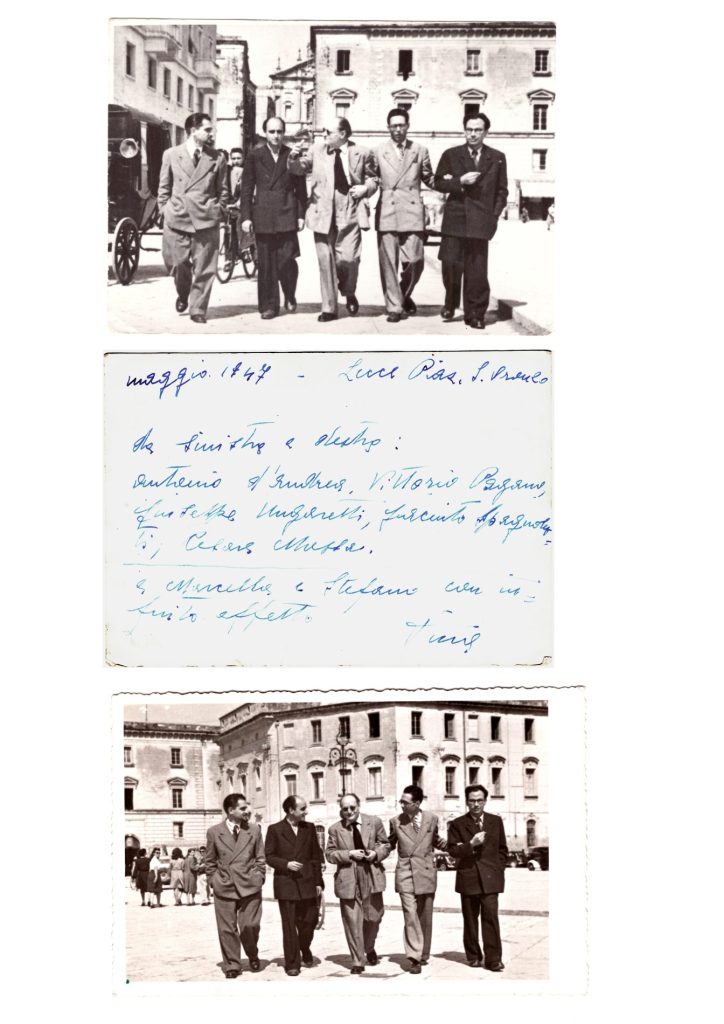 maggio 1947 - Lecce Piaz. S. Oronzo
da sinistra a destra:
Antonio d'Andrea, Vittorio Pagano,
Giuseppe Ungaretti, Giacinto Spagnolet=
ti, Cesare Massa.
a Marcella e Stefano con in=
finito affetto